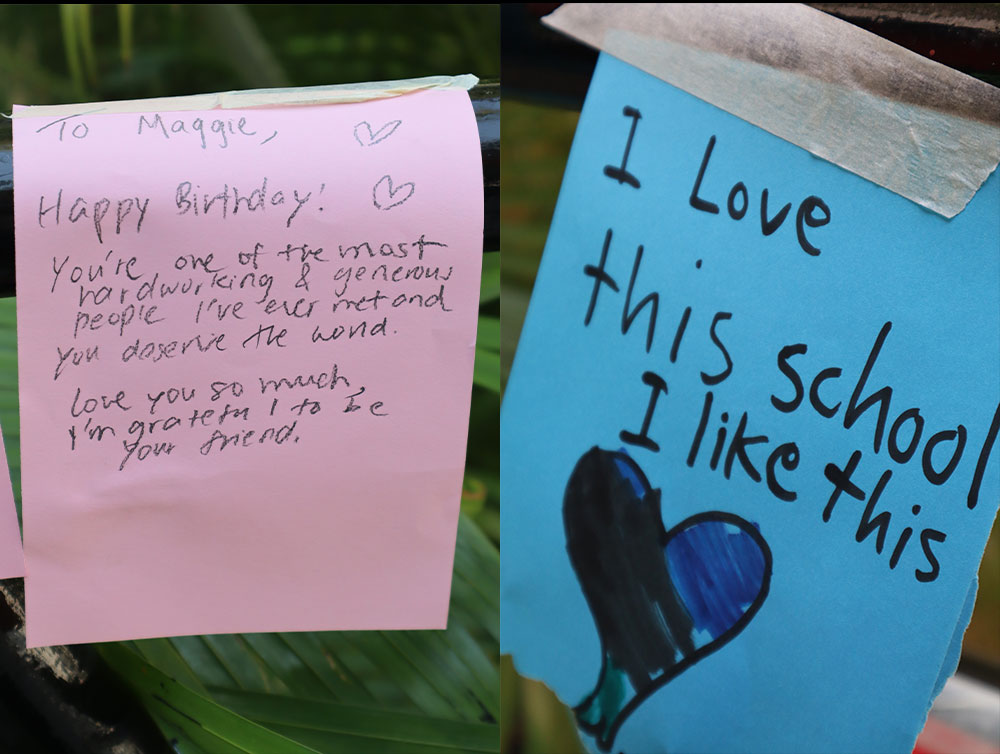 To Maggie,
Happy Birthday!
You're one of the most
hardworking & generous
people I've ever met and
you deserve the world.
Love you so much,
I'm grateful to be
your friend.
I Love
this school
I like this